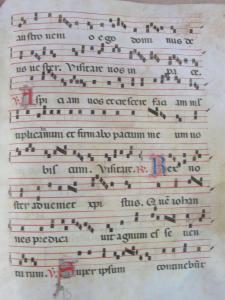 austro veni o ego domi nus de
us vester. Visitare nos in pace.
V. Aspiciam vos et crescere faciam mul
tiplicamini et firmabo pactum me um vo
bis cum. Visitare. R. Rex no
ster adveniet xpi stus. Quē iohan
nes predica vit agnum es se ven
turum. V. Super ipsum continebūt